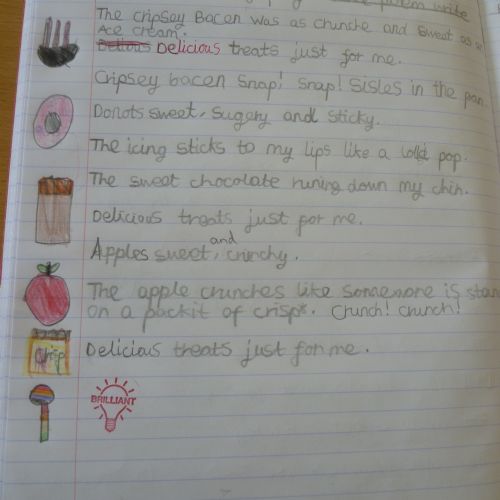 poem write
The cripsey Bacen was as chunche and sweat as
Ace cream.
Delicious treats just for me.
Cripsey bacen snap! snap! Sisles in the pan.
Donots sweet, sugery and sticky.
The icing sticks to my lips like a pop.
The sweet chocolate runing down my chin.
Delicious treats just for me.
Apples sweet, and crunchy.
The apple crunches like someone is stan
on a packit of crisps. Crunch! crunch!
Crisp
Delicious treats just for me.
BRILLIANT